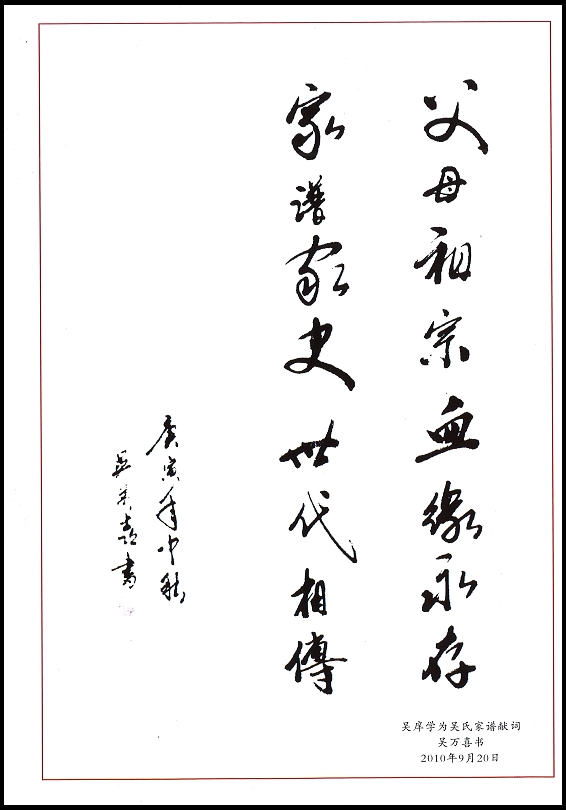 父母祖宗血缘永存
家谱家史世代相傳
庚寅年中秋
吴万喜書
吴庠学为吴氏家谱献词
吴万喜书
2010年9月20日